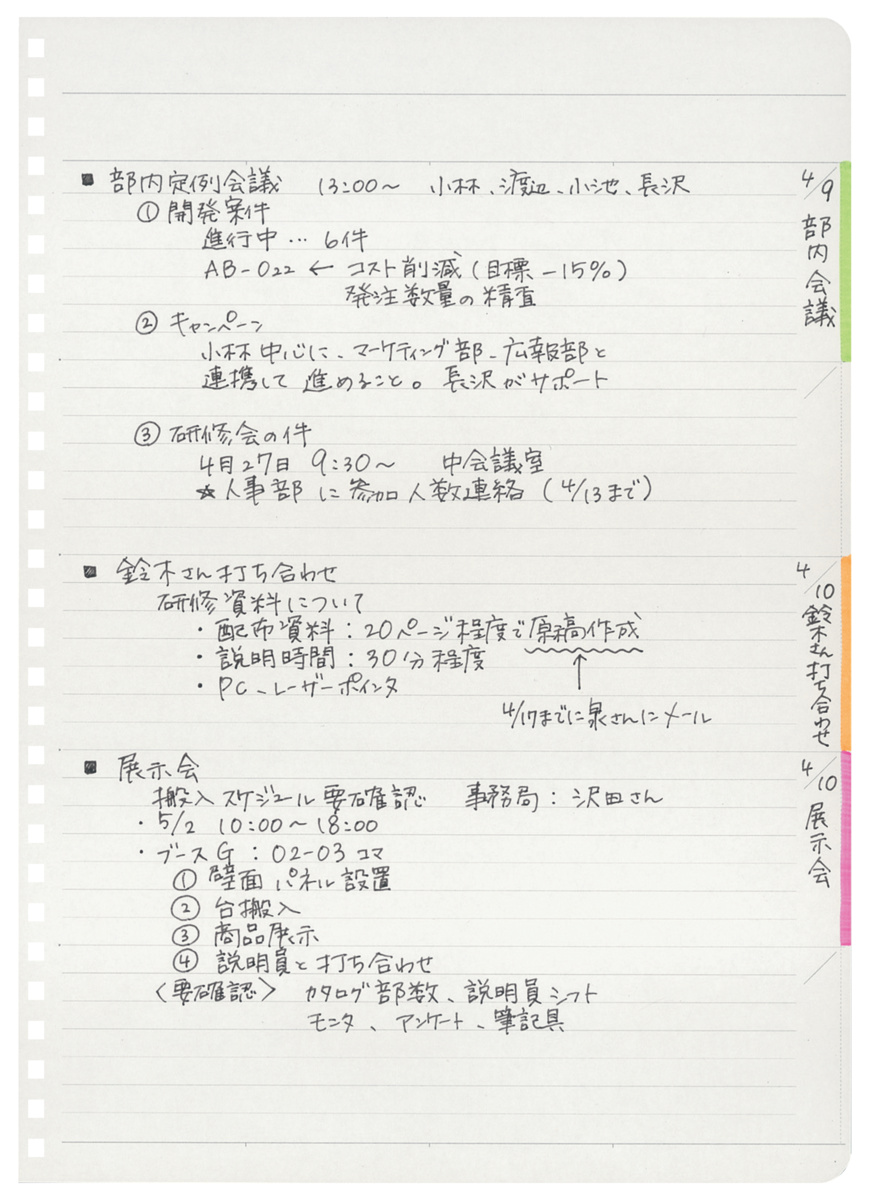 ■ 部内定例会議 13:00〜 小林、渡辺、小池、長沢
① 開発案件
進行中… 6件
AB-022 ← コスト削減(目標 -15%)
発注数量の精査
② キャンペーン
小林中心に、マーケティング部、広報部と
連携して進めること。長沢がサポート
③ 研修会の件
4月27日 9:30〜 中会議室
☆人事部に参加人数連絡(4/13まで)
■ 鈴木さん打ち合わせ
研修資料について
・配布資料:20ページ程度で原稿作成
・説明時間:30分程度
・PC、レーザーポインタ
↑
4/17までに泉さんにメール
■ 展示会
搬入スケジュール要確認 事務局:沢田さん
・5/2 10:00〜18:00
・ブースG:02-03コマ
① 壁面パネル設置
② 台搬入
③ 商品展示
④ 説明員と打ち合わせ
〈要確認〉 カタログ部数、説明員シフト
モニタ、アンケート、筆記具
4/9
部内会議
4/10
鈴木さん打ち合わせ
4/10
展示会